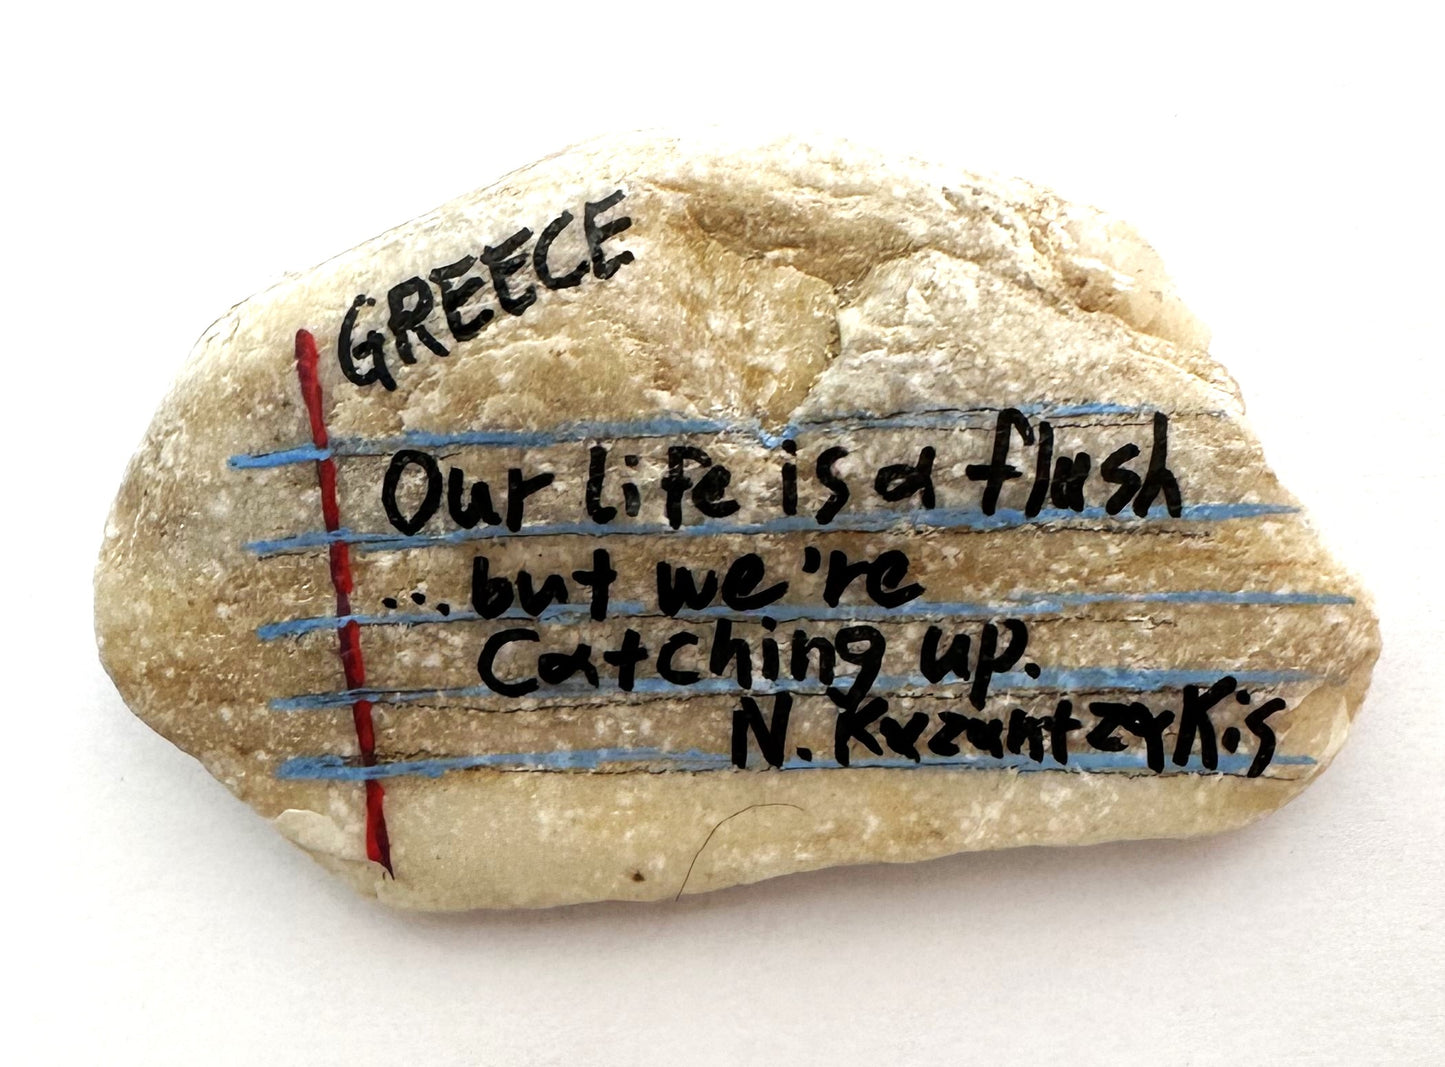 GREECE
Our life is a flush
...but we're
Catching up.
N. Kazantzakis